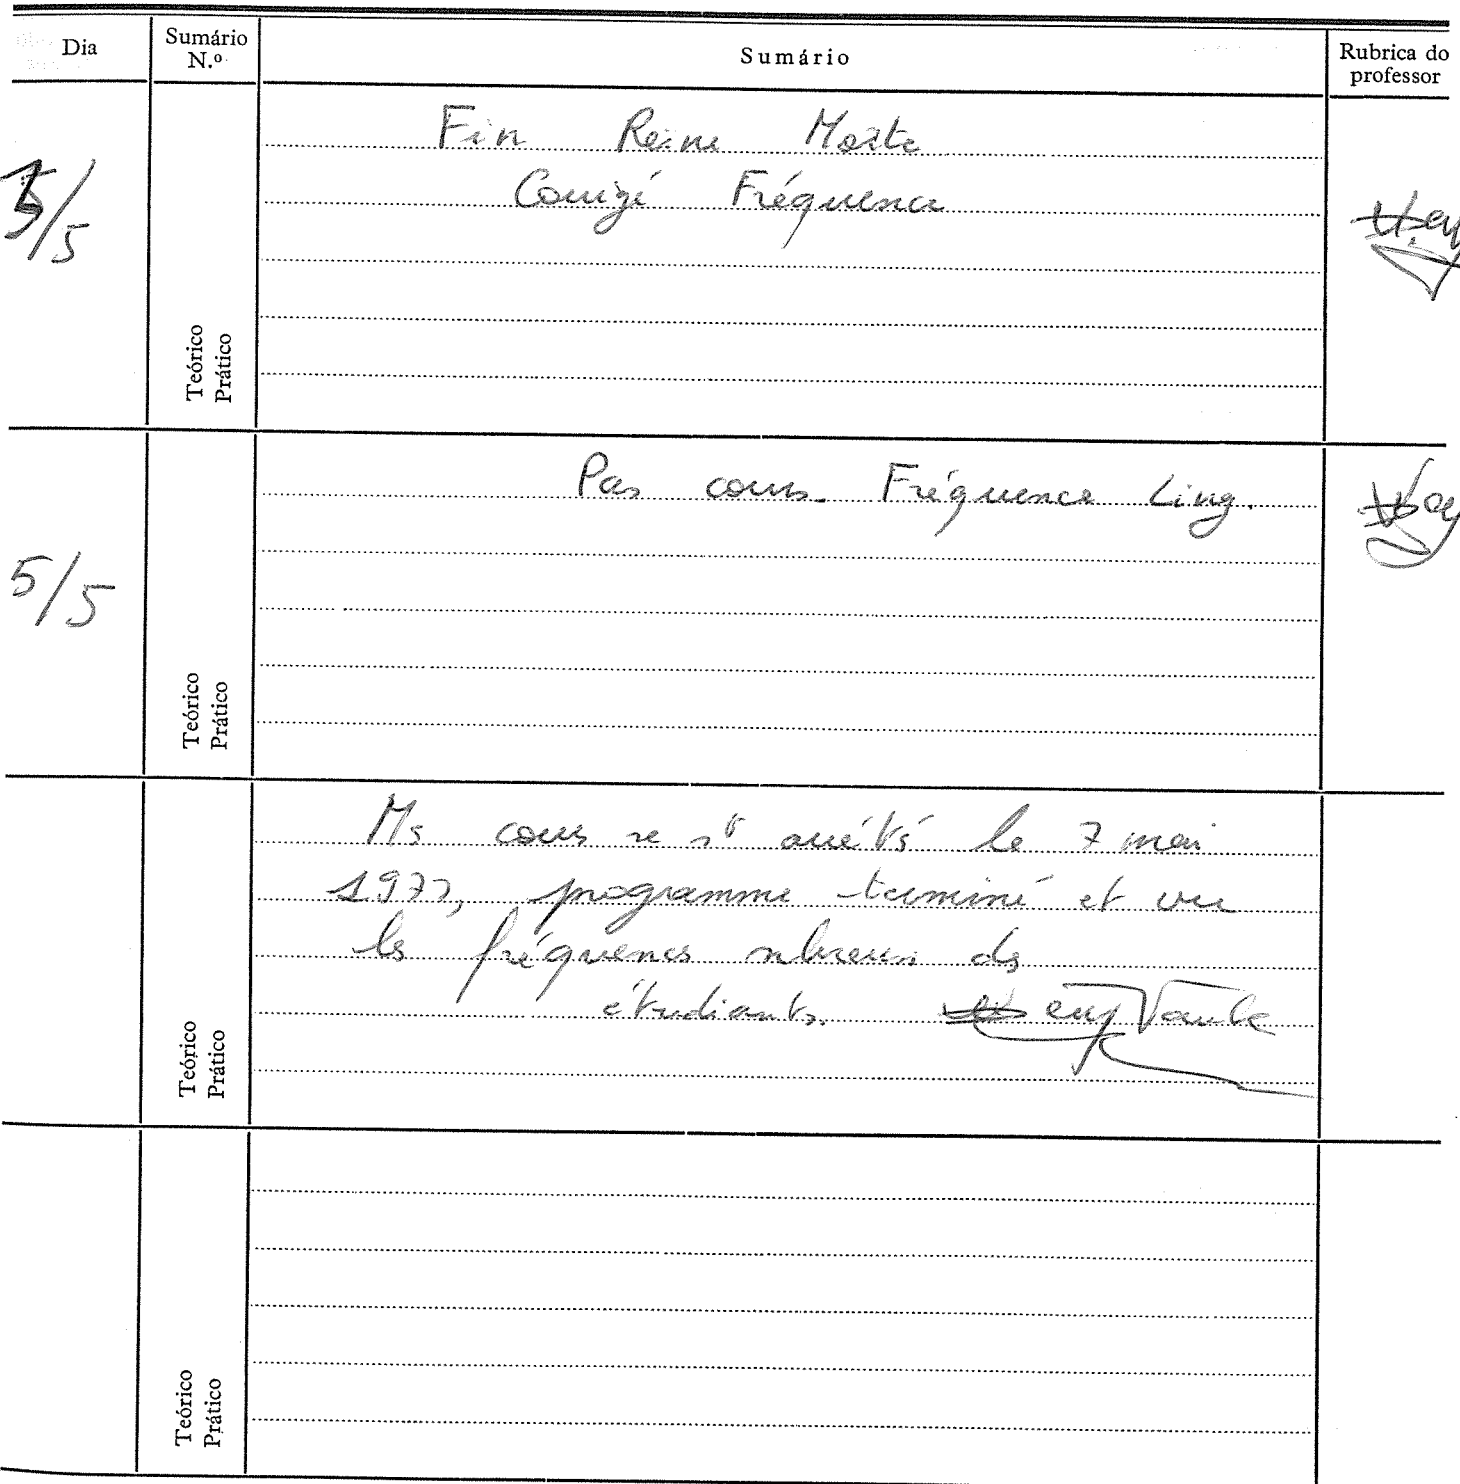 Dia
Sumário N.º
Sumário
Rubrica do professor
Fin Reine Morte
Corrigé Fréquence
/5
Teórico
Prático
Pas cours. Fréquence Ling.
5/5
Teórico
Prático
Ms cours se st arrêtés le 7 mai
1977, programme terminé et vu
les fréquences nbreuses ds
étudiants.
Teórico
Prático
Teórico
Prático